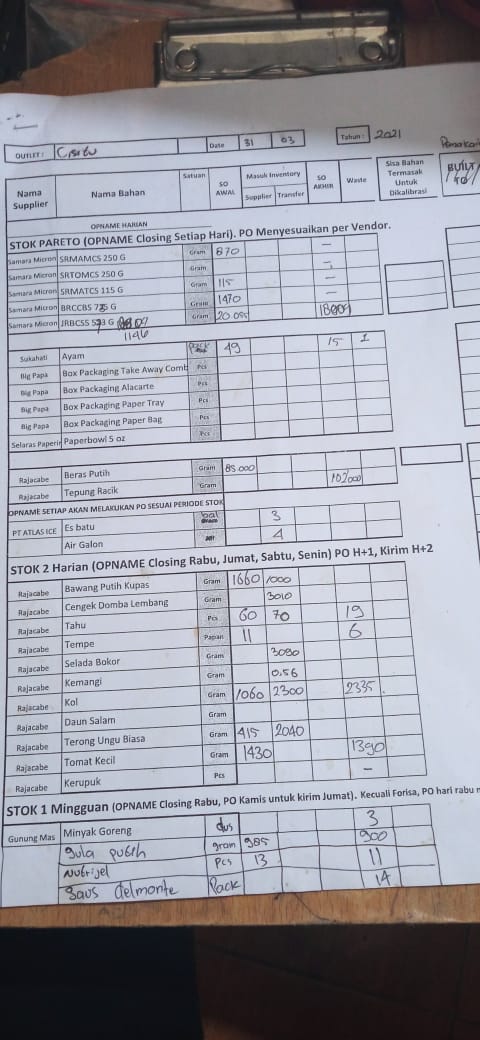 OUTLET: Cisitu Date 31 03 Tahun: 2021
Nama Supplier Nama Bahan Satuan SO AWAL Masuk Inventory Supplier Transfer SO AKHIR Waste Sisa Bahan Termasak Untuk Dikalibrasi BUILT TO
OPNAME HARIAN
STOK PARETO (OPNAME Closing Setiap Hari). PO Menyesuaikan per Vendor.
Samara Micron SRMAMCS 250 G Gram 870 –
Samara Micron SRTOMCS 250 G Gram –
Samara Micron SRMATCS 115 G Gram 115 –
Samara Micron BRCCBS 725 G Gram 1470 –
Samara Micron JRBCSS 573 G Gram
1146
Sukahati Ayam Pack 49 15 1
Big Papa Box Packaging Take Away Comb Pcs
Big Papa Box Packaging Alacarte Pcs
Big Papa Box Packaging Paper Tray Pcs
Big Papa Box Packaging Paper Bag Pcs
Selaras Paperin Paperbowl 5 oz Pcs
Rajacabe Beras Putih Gram 85000
Rajacabe Tepung Racik Gram 102000
OPNAME SETIAP AKAN MELAKUKAN PO SESUAI PERIODE STOK
PT ATLAS ICE Es batu bal 3
Air Galon 4
STOK 2 Harian (OPNAME Closing Rabu, Jumat, Sabtu, Senin) PO H+1, Kirim H+2
Rajacabe Bawang Putih Kupas Gram 1660 1000
Rajacabe Cengek Domba Lembang Gram 3010
Rajacabe Tahu Pcs 60 70 19
Rajacabe Tempe Papan 11 6
Rajacabe Selada Bokor Gram 3080
Rajacabe Kemangi Gram 0.56
Rajacabe Kol Gram 1060 2300 2335
Rajacabe Daun Salam Gram
Rajacabe Terong Ungu Biasa Gram 415 2040
Rajacabe Tomat Kecil Gram 1430 1390
Rajacabe Kerupuk Pcs –
STOK 1 Mingguan (OPNAME Closing Rabu, PO Kamis untuk kirim Jumat). Kecuali Forisa, PO hari rabu
Gunung Mas Minyak Goreng dus 3
gula putih gram 985 900
Nutrijel Pcs 13 11
saus delmonte Pack 14